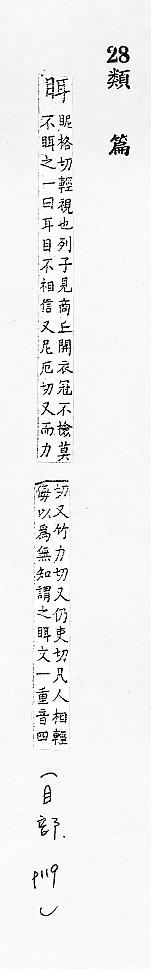 28類篇
眲
昵格切輕視也列子見商丘開衣冠不檢莫
不眲之一曰耳目不相信又尼厄切又而力
切又竹力切又仍吏切凡人相輕
侮以爲無知謂之眲文一重音四
(目部. P119)